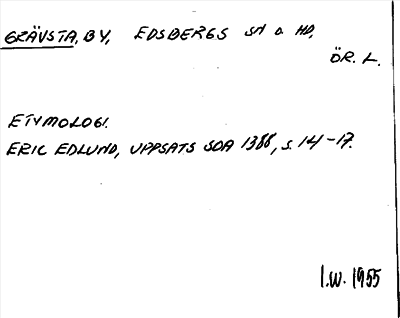 GRÄVSTA, BY, EDSBERGS SN O HD,
ÖR. L.
ETYMOLOGI.
ERIC EDLUND, UPPSATS SOA 1388, S. 14-17.
I.W. 1955